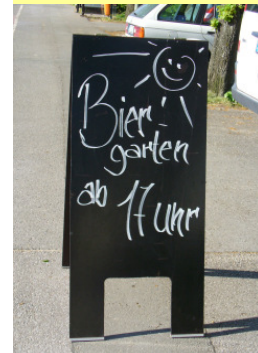 Bier-
garten
ab
17 uhr